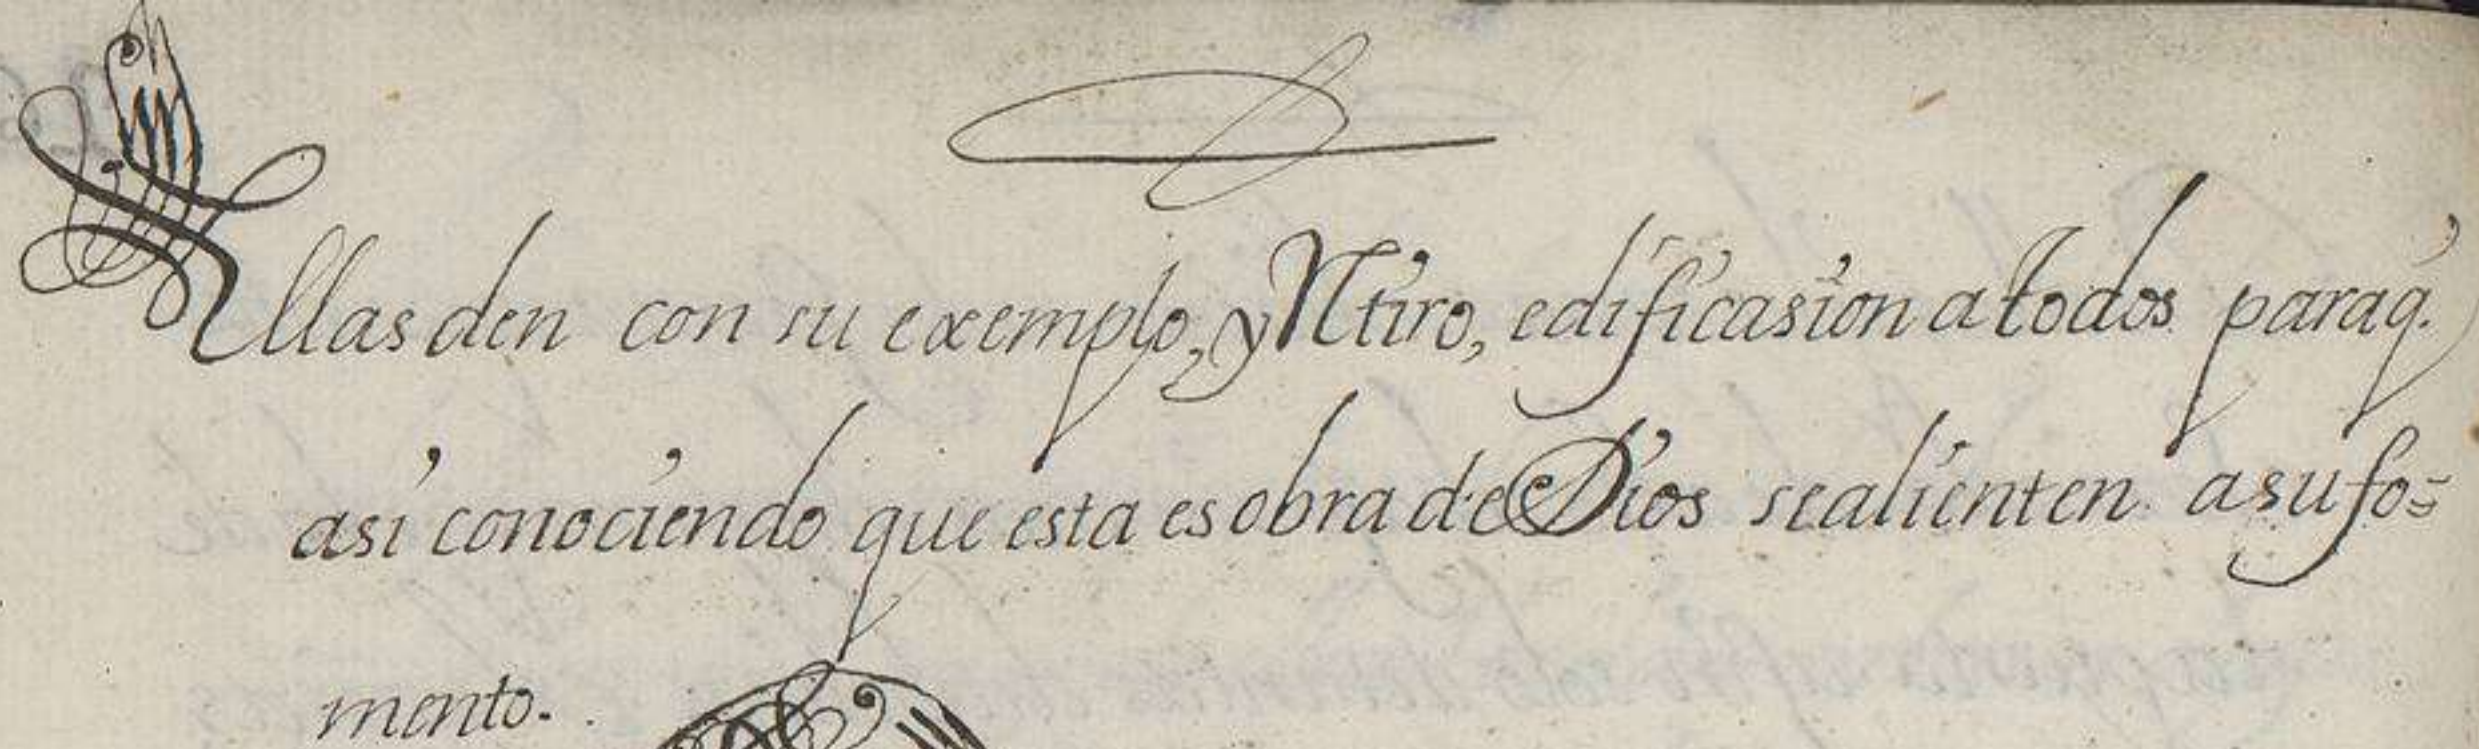 Ellas den con su exemplo, y Rtiro, edificasion a todos paraq.
asi conociendo que esta es obra de Dios se alienten a su fo=
mento.